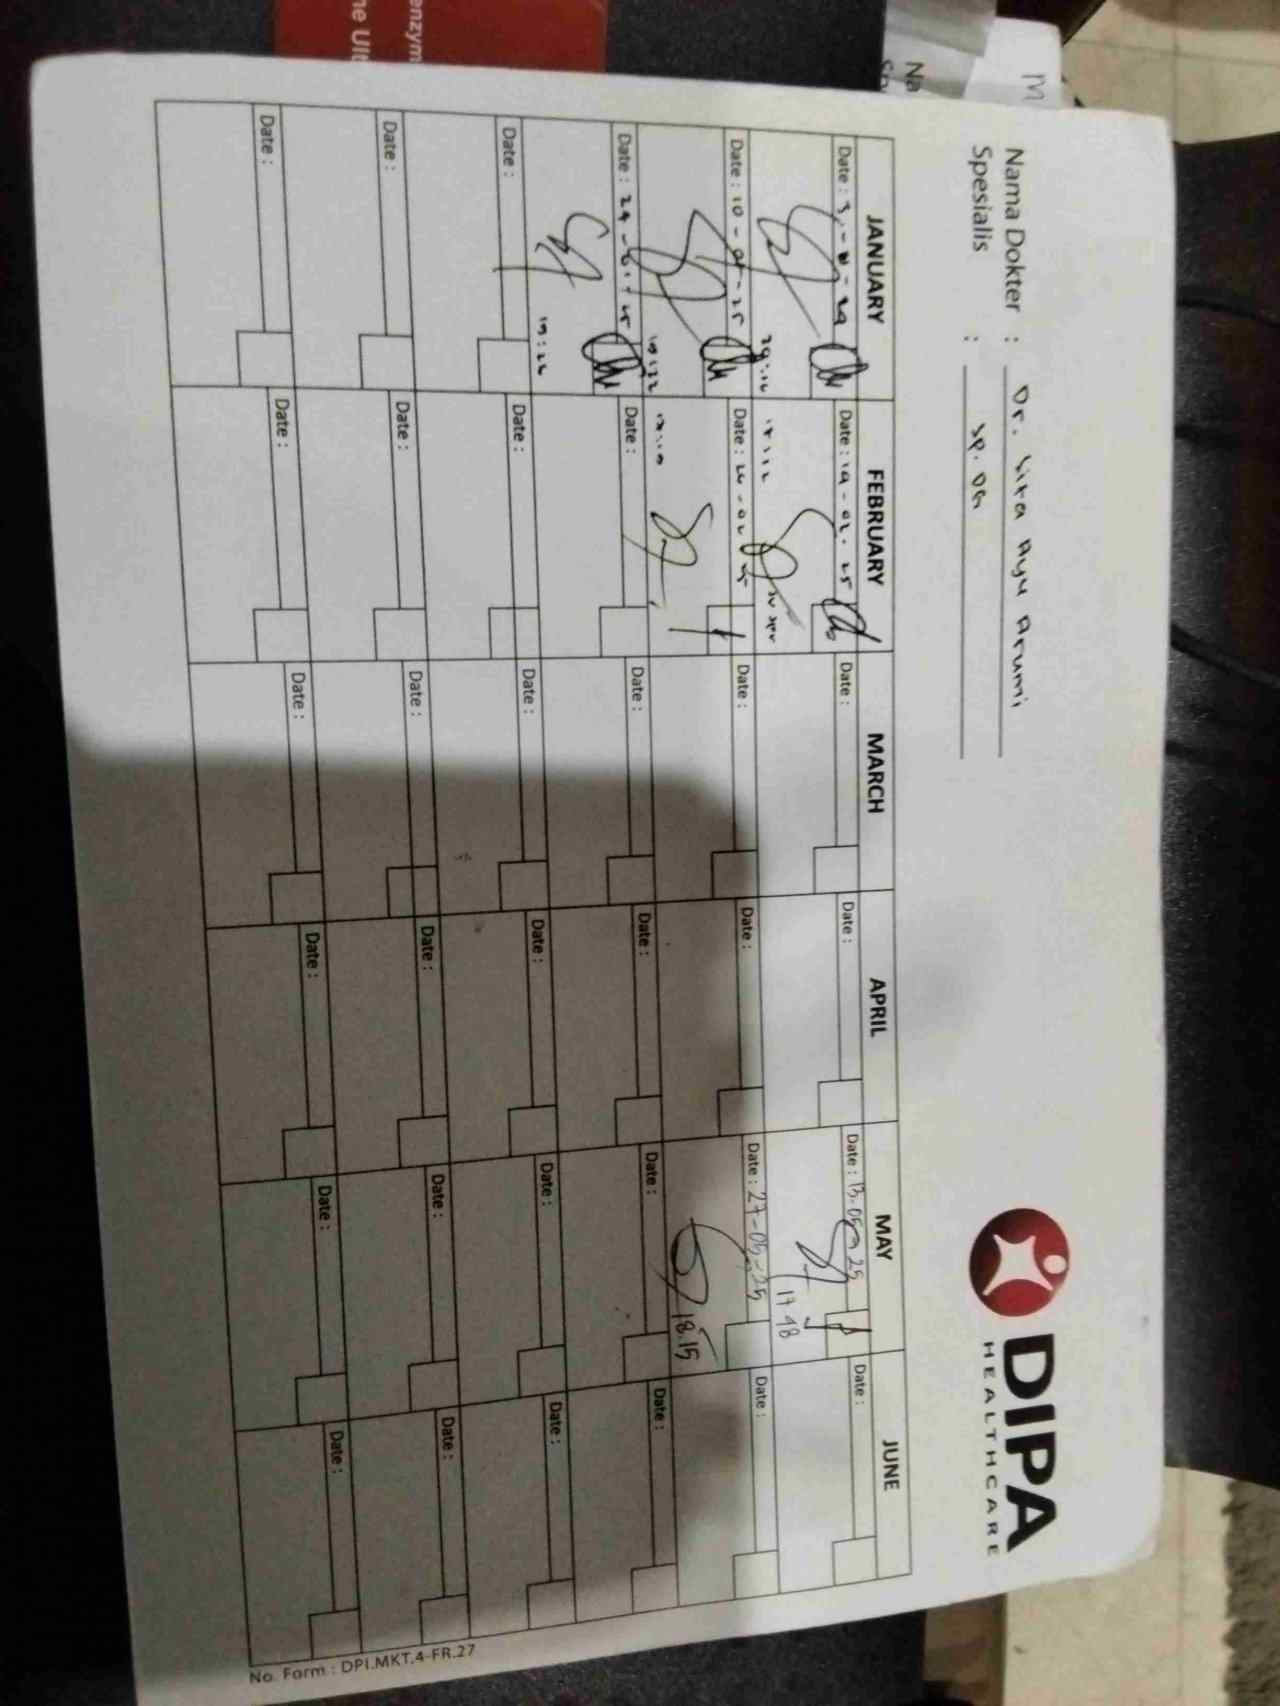 DIPA
HEALTHCARE
Nama Dokter : Dr. Sita Ayu Arumi
Spesialis : Sp. OG
JANUARY FEBRUARY MARCH APRIL MAY JUNE
Date : Date : 19-02-25 Date : Date : Date : 13-05-25 Date :
17.48
Date : 10-01-25 Date : 26-02-25 Date : Date : Date : 27-05-25 Date :
18.15
Date : 24-01-25 Date : Date : Date : Date : Date :
Date : Date : Date : Date : Date : Date :
Date : Date : Date : Date : Date : Date :
Date : Date : Date : Date : Date : Date :
No. Form : DPI.MKT.4-FR.27
enzym
he Ult
Na
M